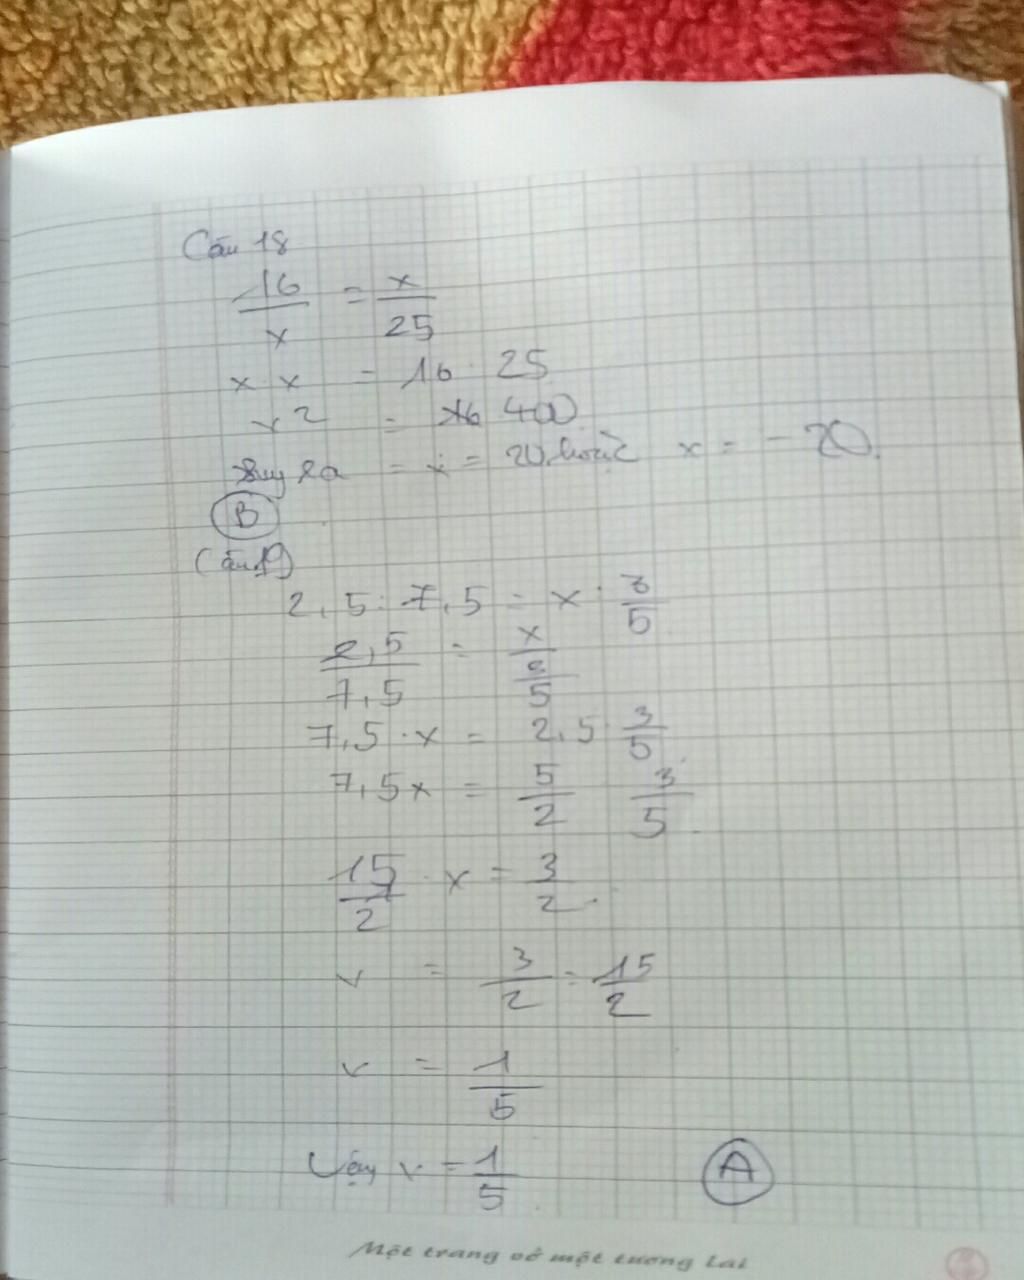 Câu 18
16/x = x/25
x · x = 16 · 25
x² = 400
Suy ra = x = 20 hoặc x = - 20.
B
Câu 19)
2,5 : 7,5 = x : 3/5
2,5/7,5 = x/(3/5)
7,5 · x = 2,5 · 3/5
7,5x = 5/2 3/5
15/2 · x = 3/2
x = 3/2 : 15/2
x = 1/5
Vậy x = 1/5 A
Một trang vở một tương lai